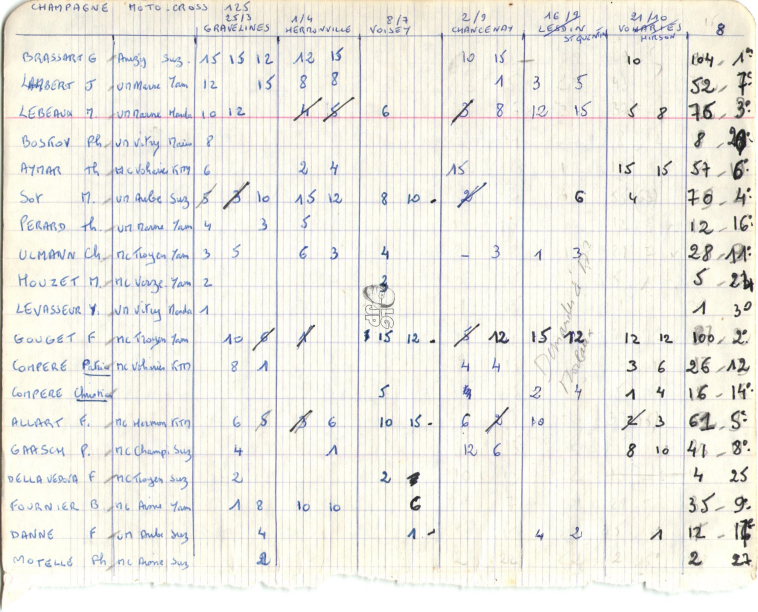 CHAMPAGNE MOTO-CROSS 125
25/3 1/4 8/7 2/9 16/9 21/10 8
GRAVELINES HERRONVILLE VOISEY CHANCENAY LESDIN ST QUENTIN VOUHARTES HIRSON
BRASSART G Suz. 15 15 12 12 15 10 15 - 10 104 1er
LAMBERT J un Marne Yam 12 15 8 8 1 3 5 52 7e
LEBEAUX M. un Marne Honda 10 12 4 5 6 3 8 12 15 5 8 76 3e
BOSKOV Ph. un Vitry 8 8
AYMAR th mc KTM 6 2 4 15 15 15 57 6e
SOY M. un Aube Suz 5 3 10 15 12 8 10 . 2 6 4 70 4e
PERARD th. un Marne Yam 4 3 5 12 16e
ULMANN Ch. mc Troyen Yam 3 5 6 3 4 - 3 1 3 28 11e
HOUZET M. mc Yam 2 3 5
LEVASSEUR Y. un Vitry Honda 1 1 30
GOUGET F mc Troyen Yam 10 6 1 15 12 . 5 12 15 12 12 12 100 2e
COMPERE Patrice mc KTM 8 1 4 4 3 6 26 12
COMPERE Christian 5 4 2 4 1 4 16 14e
ALLART F. mc KTM 6 5 3 6 10 15 . 6 2 10 2 3 61 5e
GAASCH P. mc Champ. Suz 4 1 12 6 8 10 41 8e
DELLAVEDOVA F mc Troyen Suz 2 2 1 4 25
FOURNIER B mc Yam 1 8 10 10 6 35 9e
DANNE F un Aube Suz 4 1 . 4 2 1 12
MOTELLE Ph mc Suz 2 2 27
LG
JP